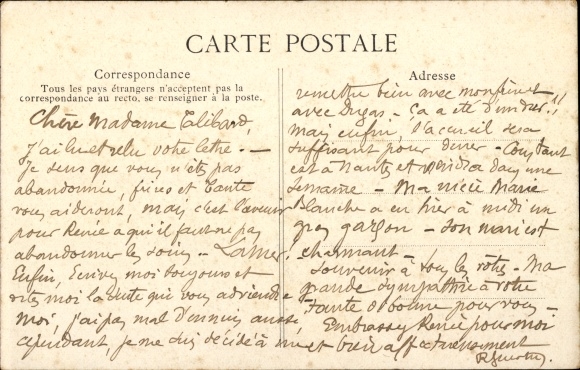 CARTE POSTALE
Correspondance
Tous les pays étrangers n'acceptent pas la
correspondance au recto, se renseigner à la poste.
Chère Madame
J'ai lu et relu votre lettre. —
Je sens que vous n'êtes pas
abandonnée, frères et tante
vous aideront, mais c'est l'avenir
pour Renée à qui il faut ne pas
abandonner les soins —
Enfin, Ecrivez moi toujours et
dites moi la suite qui vous adviendra
Moi, j'ai pas mal d'ennuis aussi,
cependant, je me suis décidé à me
Adresse
remettre bien avec mon
avec Dugas — ça a été
mais enfin, l'accueil sera
suffisant pour dîner — Constant
est à Nantes et viendra dans une
semaine — Ma nièce Marie
Blanche a eu hier à midi un
gros garçon — son mari est
charmant —
Souvenir à tous les vôtres — Ma
grande sympathie à votre
tante si bonne pour vous —
Embrassez Renée pour moi
et bien affectueusement